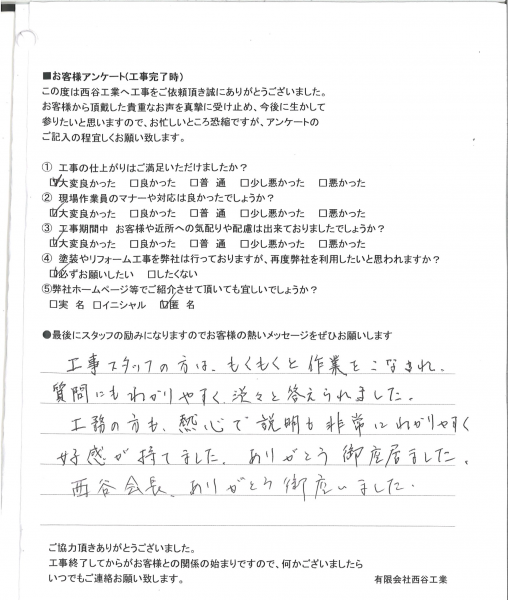 ■お客様アンケート(工事完了時)
この度は西谷工業へ工事をご依頼頂き誠にありがとうございました。
お客様から頂戴した貴重なお声を真摯に受け止め、今後に生かして
参りたいと思いますので、お忙しいところ恐縮ですが、アンケートの
ご記入の程宜しくお願い致します。
① 工事の仕上がりはご満足いただけましたか？
☑大変良かった □良かった □普 通 □少し悪かった □悪かった
② 現場作業員のマナーや対応は良かったでしょうか？
☑大変良かった □良かった □普 通 □少し悪かった □悪かった
③ 工事期間中 お客様や近所への気配りや配慮は出来ておりましたでしょうか？
☑大変良かった □良かった □普 通 □少し悪かった □悪かった
④ 塗装やリフォーム工事を弊社は行っておりますが、再度弊社を利用したいと思われますか？
☑必ずお願いしたい □したくない
⑤弊社ホームページ等でご紹介させて頂いても宜しいでしょうか？
□実 名 □イニシャル ☑匿 名
●最後にスタッフの励みになりますのでお客様の熱いメッセージをぜひお願いします
工事スタッフの方は、もくもくと作業をこなされ、
質問にもわかりやすく、淡々と答えられました。
工務の方も、熱心で説明も非常にわかりやすく
好感が持てました。ありがとう御座居ました。
西谷会長、ありがとう御座いました。
ご協力頂きありがとうございました。
工事終了してからがお客様との関係の始まりですので、何かございましたら
いつでもご連絡お願い致します。
有限会社西谷工業